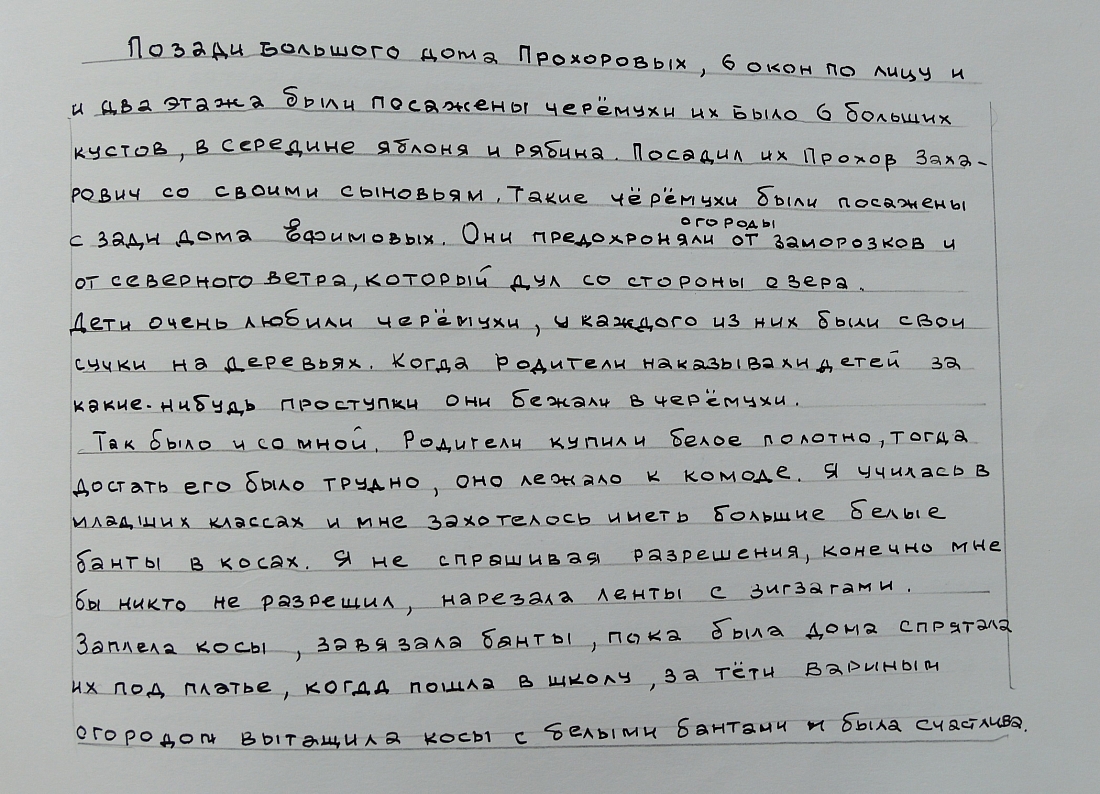 Позади Большого дома Прохоровых, 6 окон по лицу и
и два этажа были посажены черёмухи их было 6 больших
кустов, в середине яблоня и рябина. Посадил их Прохор Заха-
рович со своими сыновьям. Такие чёрёмухи были посажены
огороды
с зади дома Ефимовых. Они предохроняли от заморозков и
от северного ветра, который дул со стороны озера.
Дети очень любили черёмухи, у каждого из них были свои
сучки на деревьях. Когда родители наказывахи детей за
какие-нибудь проступки они бежали в черёмухи.
Так было и со мной. Родители купили белое полотно, тогда
достать его было трудно, оно лежало к комоде. Я училась в
младших классах и мне захотелось иметь большие белые
банты в косах. Я не спрашивая разрешения, конечно мне
бы никто не разрешил, нарезала ленты с зигзагами.
Заплела косы, завязала банты, пока была дома спрятала
их под платье, когда пошла в школу, за тёти Вариным
огородом вытащила косы с белыми бантами и была счастлива.